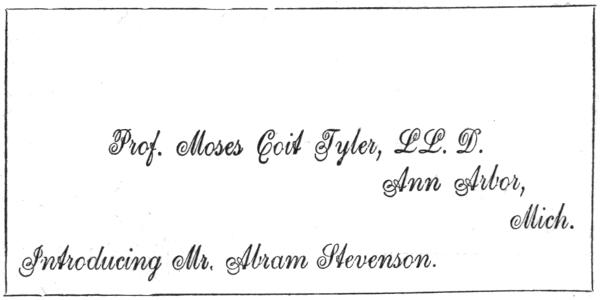 Prof. Moses Coit Tyler, LL. D.
Ann Arbor,
Mich.
Introducing Mr. Abram Stevenson.